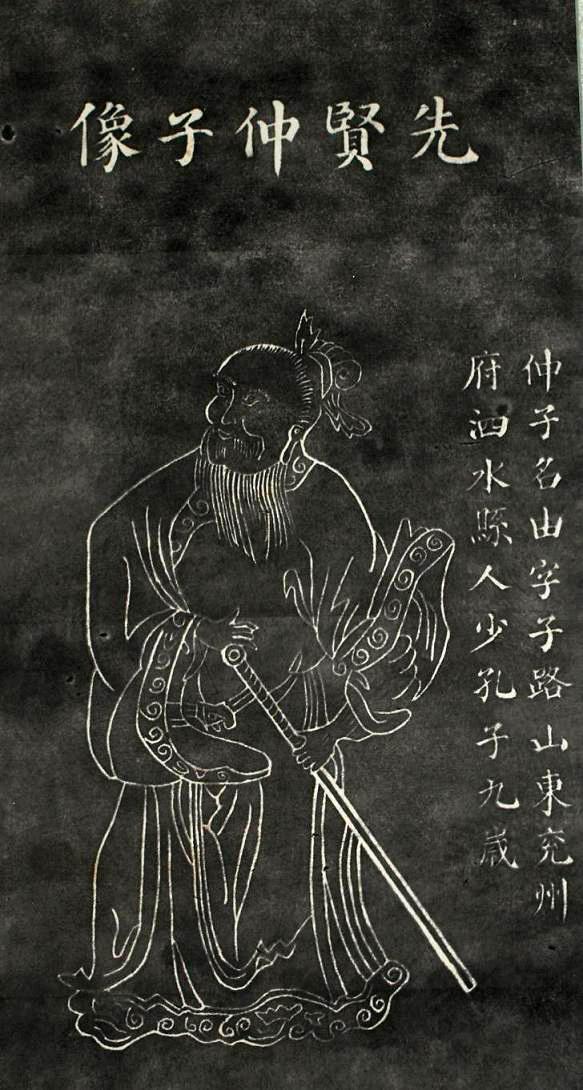 先賢仲子像
仲子名由字子路山東兖州
府泗水縣人少孔子九歲